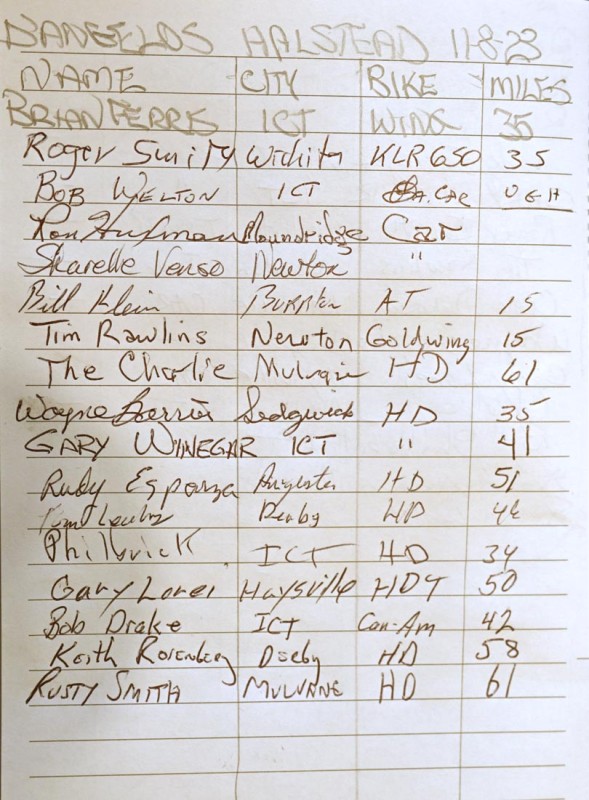 DANGELOS HALSTEAD 11-8-23
NAME CITY BIKE MILES
BRIAN FERRIS ICT WING 35
Roger Smith Wichita KLR650 35
BOB WELTON ICT CAR UGH
Ron Hufman Moundridge Car
Sharelle Newton "
Bill Klein Burrton AT 15
Tim Rawlins Newton Goldwing 15
The Charlie Mulvane HD 61
Wayne Sedgwick HD 35
GARY WINEGAR ICT " 41
Rudy Esparza Augusta HD 51
Derby HD
Philbrick ICT HD 34
Gary Haysville 50
Bob Drake ICT Can-Am 42
Keith Rosenberg Derby HD 58
RUSTY SMITH MULVANE HD 61